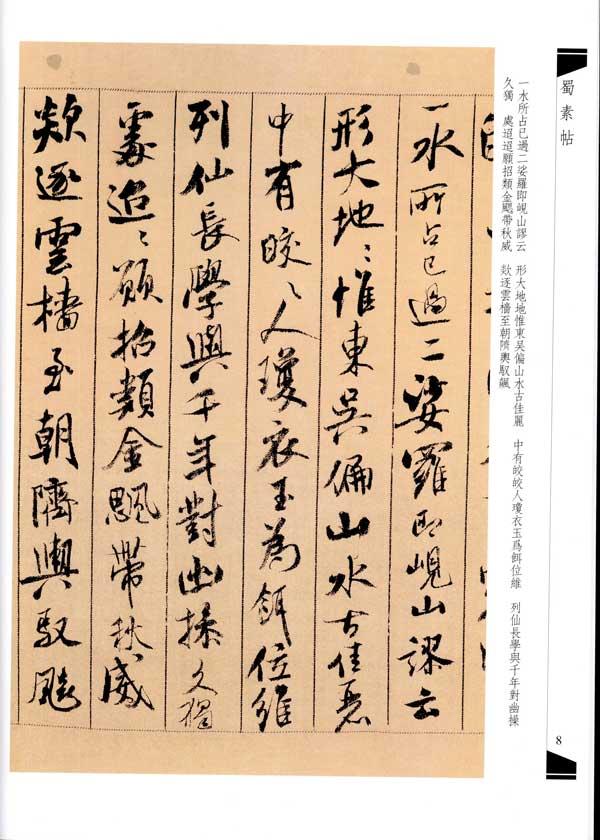 蜀素帖
一水所占已過二娑羅即峴山謬云　形大地地惟東吴偏山水古佳麗　中有皎皎人瓊衣玉爲餌位維　列仙長學與千年對幽操
久獨　處迢迢願招類金飈帶秋威　欻逐雲檣至朝隮輿馭飆
一水所占已過二娑羅即峴山謬云
形大地〻惟東吴偏山水古佳麗
中有皎〻人瓊衣玉為餌位維
列仙長學與千年對幽操久獨
處迢〻願招類金飈帶秋威
欻逐雲檣至朝隮輿馭飆
8